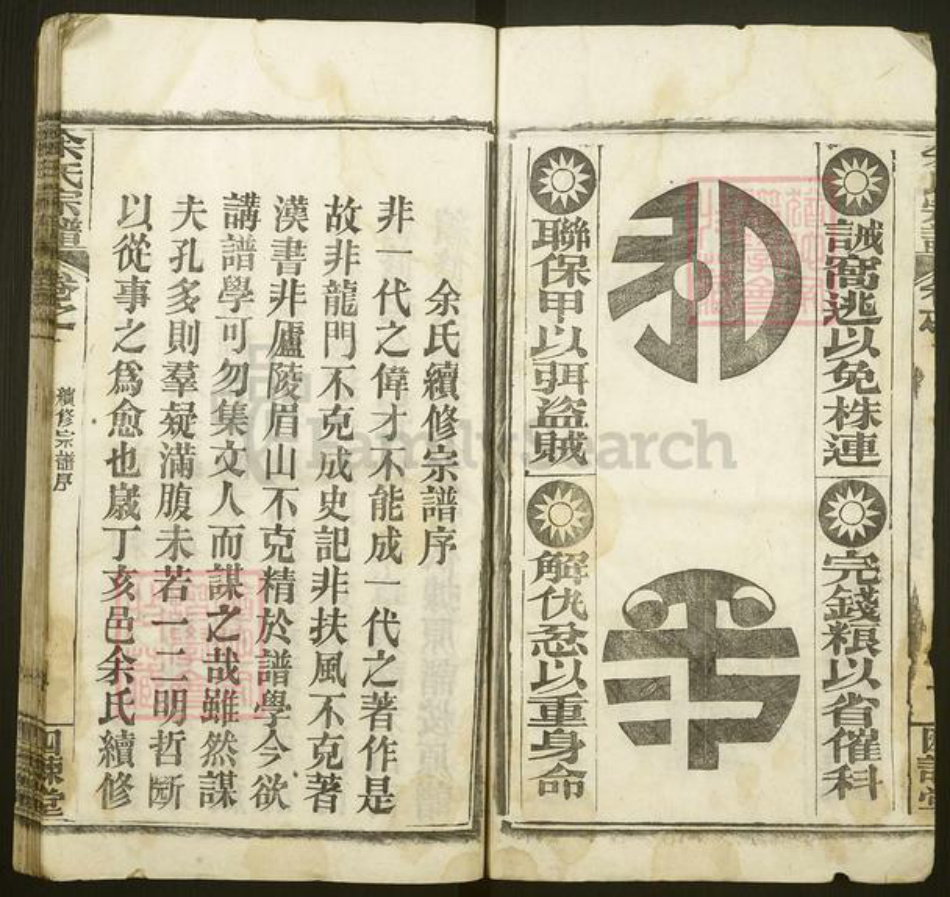 誠窩逃以免株連
完錢粮以省催科
和
平
聯保甲以弭盜賊
解仇忿以重身命
余氏續修宗譜序
非一代之偉才不能成一代之著作是
故非龍門不克成史記非扶風不克著
漢書非廬陵眉山不克精於譜學今欲
講譜學可勿集文人而謀之哉雖然謀
夫孔多則羣疑滿腹未若一二明哲斷
以從事之爲愈也歲丁亥邑余氏續修
余氏宗譜
卷之一
續修宗譜序
四諫堂
FamilySearch